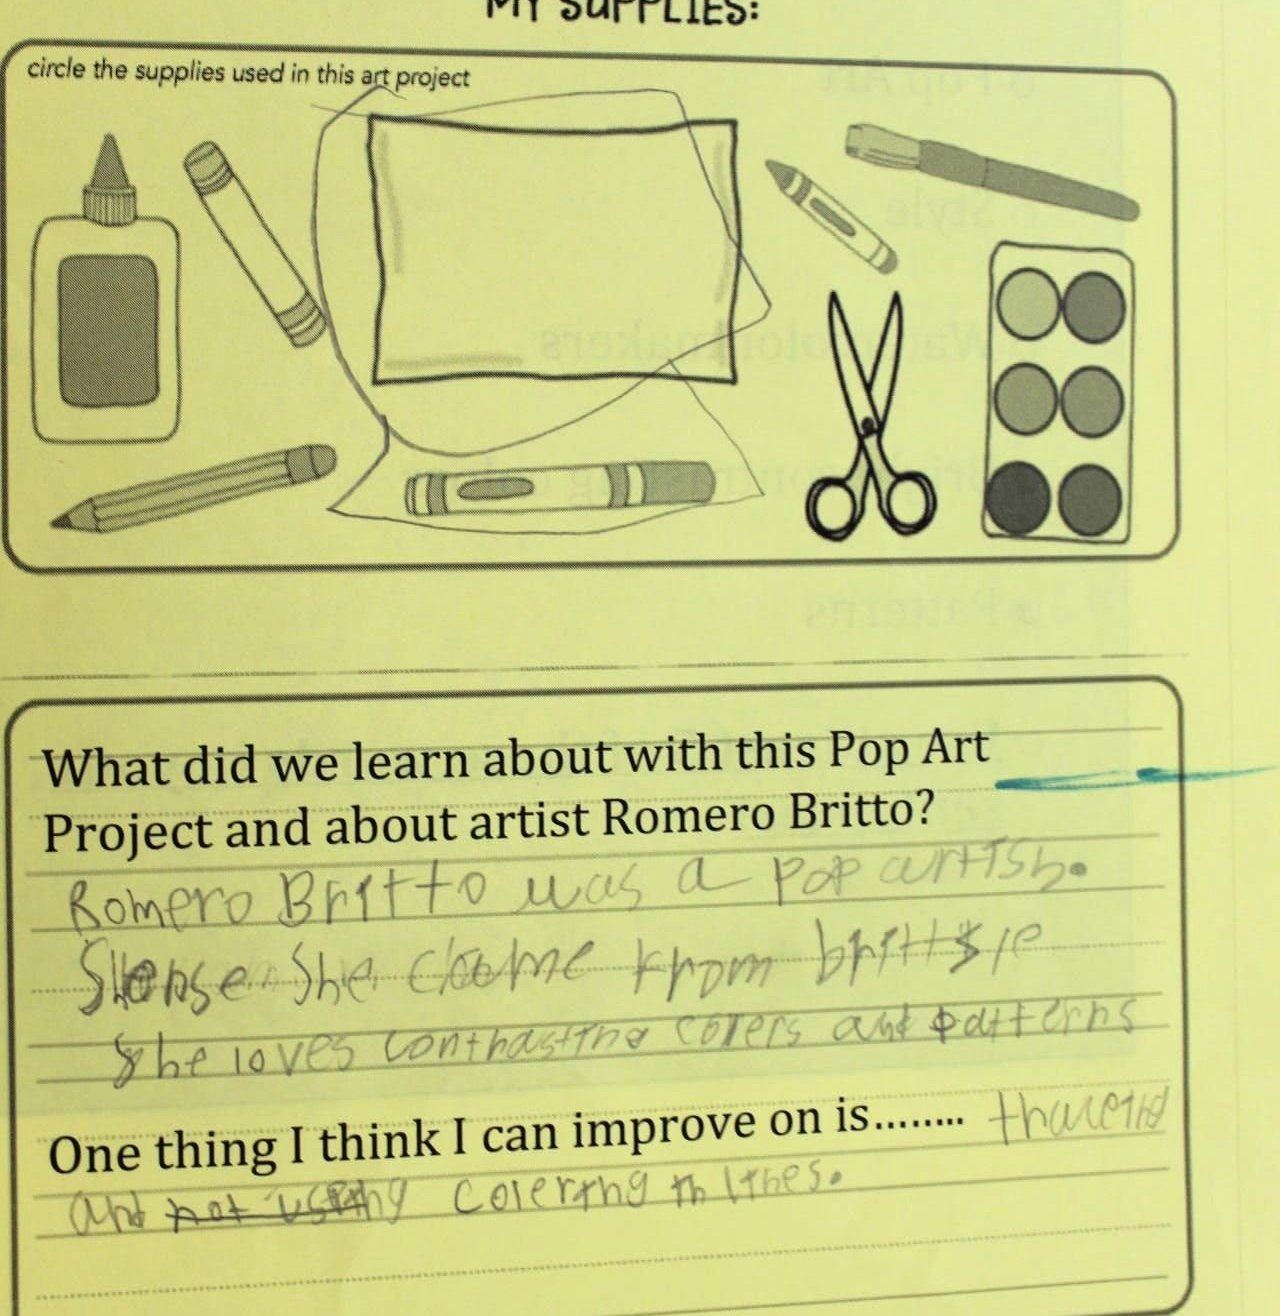 MY SUPPLIES:
circle the supplies used in this art project
What did we learn about with this Pop Art
Project and about artist Romero Britto?
Romero Britto was a pop
She From
She loves contrasting colers and patterns
One thing I think I can improve on is........
and not using colering in lines.